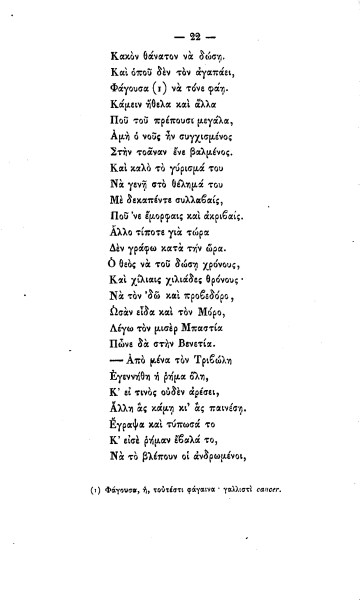 — 22 —
Κακὸν θάνατον νὰ δώσῃ.
Καὶ ὁποῦ δὲν τὸν ἀγαπάει,
Φάγουσα (1) νὰ τόνε φαῇ.
Κάμειν ἤθελα καὶ ἄλλα
Ποῦ τοῦ πρέπουσι μεγάλα,
Ἀμὴ ὁ νοῦς ἦν συγχισμένος
Στὴν τοᾶναν ἔνε βαλμένος.
Καὶ καλὸ τὸ γύρισμά του
Νὰ γενῇ στὸ θέλημά του
Μὲ δεκαπέντε συλλαβαίς,
Ποῦ ’νε ἐμορφαις καὶ ἀκριβαίς.
Ἄλλο τίποτε γιὰ τώρα
Δὲν γράφω κατὰ τὴν ὥρα.
Ὁ θεὸς νὰ τοῦ δώσῃ χρόνους,
Καὶ χίλιαις χιλιάδες θρόνους·
Νὰ τὸν ’δῶ καὶ προβεδόρο,
Ὡσὰν εἶδα καὶ τὸν Μόρο,
Λέγω τὸν μισὲρ Μπαστία
Πῶνε δὰ στὴν Βενετία.
— Ἀπὸ μένα τὸν Τριβώλη
Ἐγεννήθη ἡ ῥῆμα ὅλη,
Κ’ εἴ τινος οὐδὲν ἀρέσει,
Ἄλλη ἂς κάμῃ κι’ ἂς παινέσῃ.
Ἔγραψα καὶ τύπωσά το
Κ’ εἰσὲ ῥῆμαν ἔβαλά το,
Νὰ τὸ βλέπουν οἱ ἀνδρωμένοι,
(1) Φάγουσα, ἡ, τουτέστι φάγαινα· γαλλιστὶ cancer.